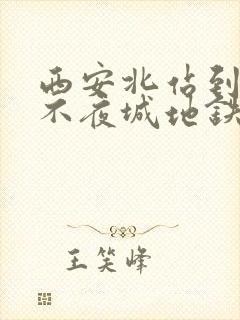 西安北佔到
不夜城地鉄
王笑峰